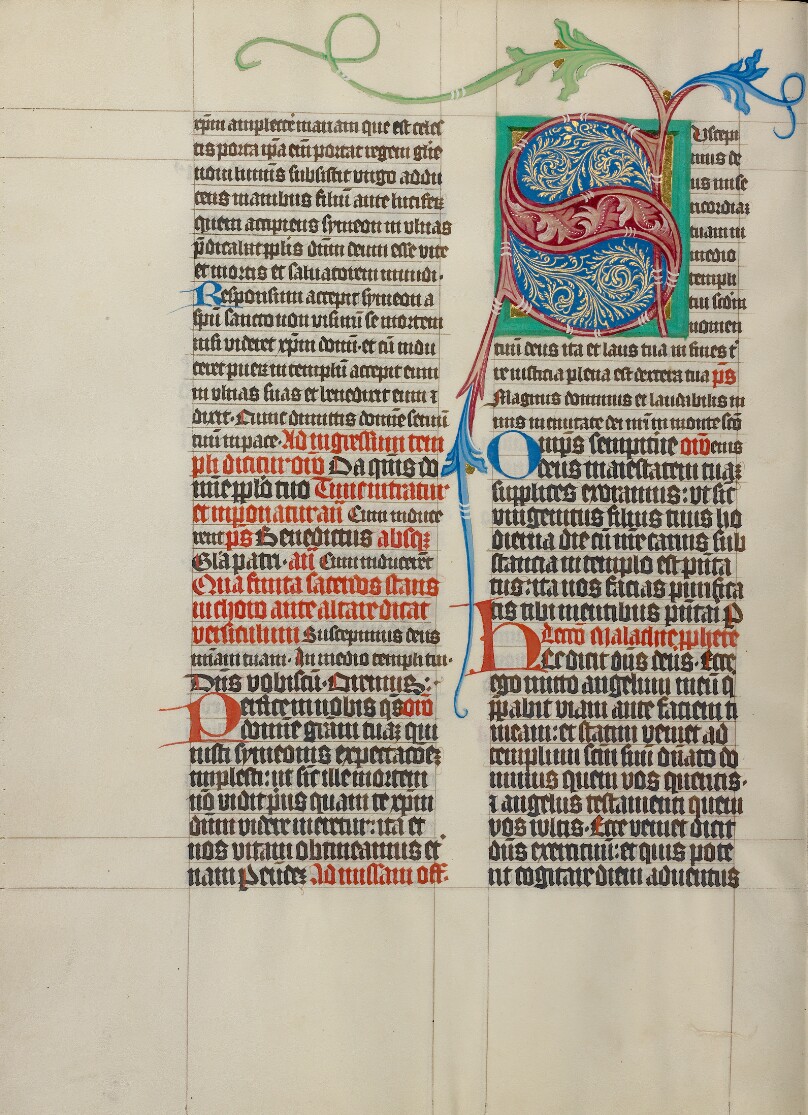 xp̄m amplecte mariam que est celes
tis porta ip̄a em̄ portat regem glīe
noui luminis subsistit uirgo addu
cens manibus filiū ante luciferū
quem accipiens symeon in vlnas
p̄dicauit ppl̄is dn̄m deum esse vite
et mortis et saluatorem mundi.
Responsum accepit symeon a
spū sancto non visurū se mortem
nisi videret xp̄m domī. et cū indu
cerent pueꝝ in templū accepit eum
in vlnas suas et benedixit eum ⁊
dixit. Nunc dimittis domīe seruū
tuū in pace. Ad ingressum tem
pli dicitur orō Da quis do
mīe pplo tuo Tunc intratur
et imponatur añ Cum induce
rent ps Benedictus absqꝫ
Glā patri. añ Cum inducerēt
Qua finita sacerdos stans
in choro ante altare dicat
versiculum Suscepimus deus
mīam tuam. In medio templi tui.
Dn̄s vobiscū. Oremus:
Perfice in nobis q̄s orō
domīe grām tuaꝫ qui
iusti symeonis expectacōeꝫ
implesti: ut sic̄ ille mortem
nō vidit pri̅us quam te xp̄m
dn̄m videre meretur: ita et
nos vitam obtineamus et̄
nam P eundeꝫ Ad missam off.
Suscepi
mus de
us mise
ricordiaꝫ
tuam in
medio
templi
tui scdm̄
nomen
tuū deus ita et laus tua in fines t̄
re iusticia plena est dextera tua ps
Magnus dominus et laudabilis ni
mis in ciuitate dei nr̄i in monte scō
Omps sempitne orō eius
deus maiestatem tuaꝫ
supplices exoramus: vt sic̄
vnigenitus filius tuus ho
dierna die cū nr̄e carnis sub
stancia in templo est pn̄ta
tus: ita nos facias purifica
tis tibi mentibus pn̄tari P
Lectō Malachie pphete
Hec dicit dn̄s deus. Ecce
ego mitto angelum meū q̄
p̄parabit viam ante faciem
meam: et statim veniet ad
templum scm̄ suū dn̄ator do
minus quem vos queritis.
⁊ angelus testamenti quem
vos vultis. Ecce veniet dicit
dn̄s exercituū: et quis pote
rit cogitare diem aduentus